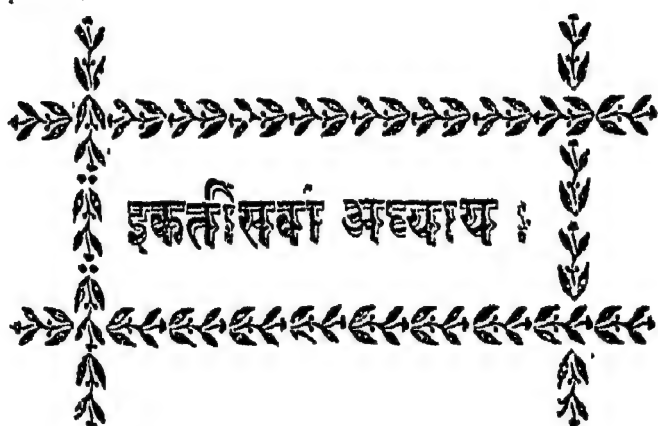 इकतीसवां अध्याय ।